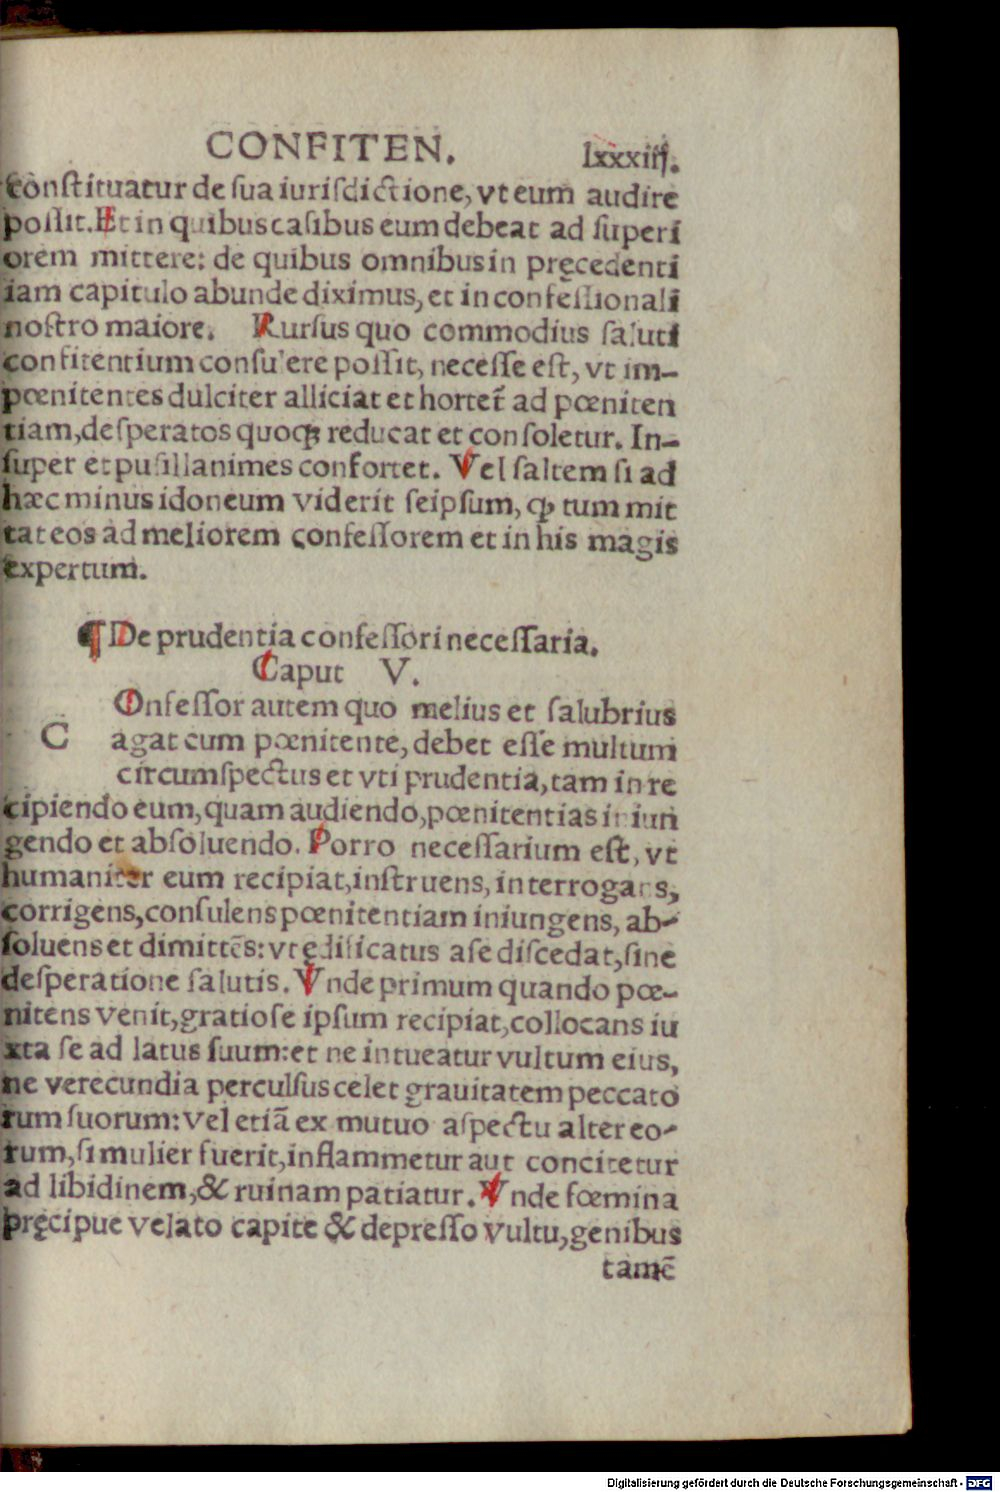 CONFITEN. lxxxiiij.
constituatur de sua iurisdictione, vt eum audire
possit. Et in quibus casibus eum debeat ad superi
orem mittere: de quibus omnibus in pręcedenti
iam capitulo abunde diximus, et in confessionali
nostro maiore. Rursus quo commodius saluti
confitentium consulere possit, necesse est, vt im-
pœnitentes dulciter alliciat et hortet̃ ad pœniten
tiam, desperatos quoqꝫ reducat et consoletur. In-
super et pusillanimes confortet. Vel saltem si ad
hæc minus idoneum viderit seipsum, ꝙ tum mit
tat eos ad meliorem confessorem et in his magis
expertum.
¶ De prudentia confessori necessaria.
Caput V.
Onfessor autem quo melius et salubrius
C agat cum pœnitente, debet esse multum
circumspectus et vti prudentia, tam in re
cipiendo eum, quam audiendo, pœnitentias iniun
gendo et absoluendo. Porro necessarium est, vt
humaniter eum recipiat, instruens, interrogans,
corrigens, consulens pœnitentiam iniungens, ab-
soluens et dimittēs: vt ędificatus a se discedat, sine
desperatione salutis. Vnde primum quando pœ-
nitens venit, gratiose ipsum recipiat, collocans iu
xta se ad latus suum: et ne intueatur vultum eius,
ne verecundia perculsus celet grauitatem peccato
rum suorum: Vel etiã ex mutuo aspectu alter eo-
rum, si mulier fuerit, inflammetur aut concitetur
ad libidinem, & ruinam patiatur. Vnde fœmina
pręcipue velato capite & depresso vultu, genibus
tamē
Digitalisierung gefördert durch die Deutsche Forschungsgemeinschaft - DFG